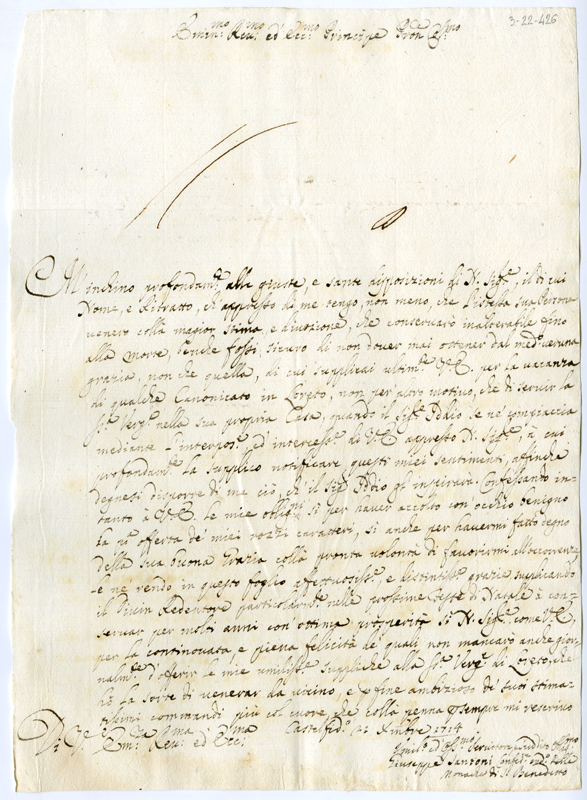 3-22-426
Emin:mo Reu:mo ed Ecc:mo Principe Pron Col:mo
M'inchino profondam.te alle giuste, e sante disposizioni di N. Sig.re, il di cui
Nome, e Ritratto, ch'appresso di me tengo, non meno, che l'istessa sua Persona
venero colla magior stima, e divozione, che conservarò inalterabile fino
alla morte, benche fossi sicuro di non dover mai ottener dal med.mo veruna
grazia, non che quella, di cui supplicai ultim.te V.E. per la vacanza
di qualche Canonicato in Loreto, non per altro motivo, che di servir la
SS. Verg.e nella sua propria Casa, quando il Sig.re Iddio se ne compiaccia
mediante l'interpos.ne ed intercess.ne di V.E. appresso N. Sig.re, à cui
profondam.te la supplico notificare questi miei sentimenti, affinche
degnesi disporre di me ciò, ch'il Sig.re Iddio gl'inspirarà. Confessando in-
tanto à V.E. le mie oblig.ni sì per haver accolto con'occhio benigno
la offerta de' miei rozzi caratteri, si anche per havermi fatto degno
della sua buona grazia colla pronta volontà di favorirmi all'occorrenze,
le ne rendo in questo foglio affettuosiss.e, e distintiss.e grazie supplicando
il Divin Redentore particolarm.te nelle prossime Feste di Natale à con-
servar per molti anni con ottima prosperità sì N. Sig.re, come V.E.
per la continovata, e piena felicità de quali non mancarò anche gior-
nalm.te d'offerir le mie umiliss.e suppliche alla SS. Verg.e di Loreto, che
hò la sorte di venerar da vicino, e fine ambizioso de' suoi stima-
tissimi commandi più col cuore che colla penna p sempre mi rescrivo
D: V: Em:za Reu:ma ed Ecc:ma Castelfid.o Xmbre 1714
Umil.o ed Obl.mo Servitore
Giuseppe Santoni Conf.re ord.o delle
Monache di S. Benedetto